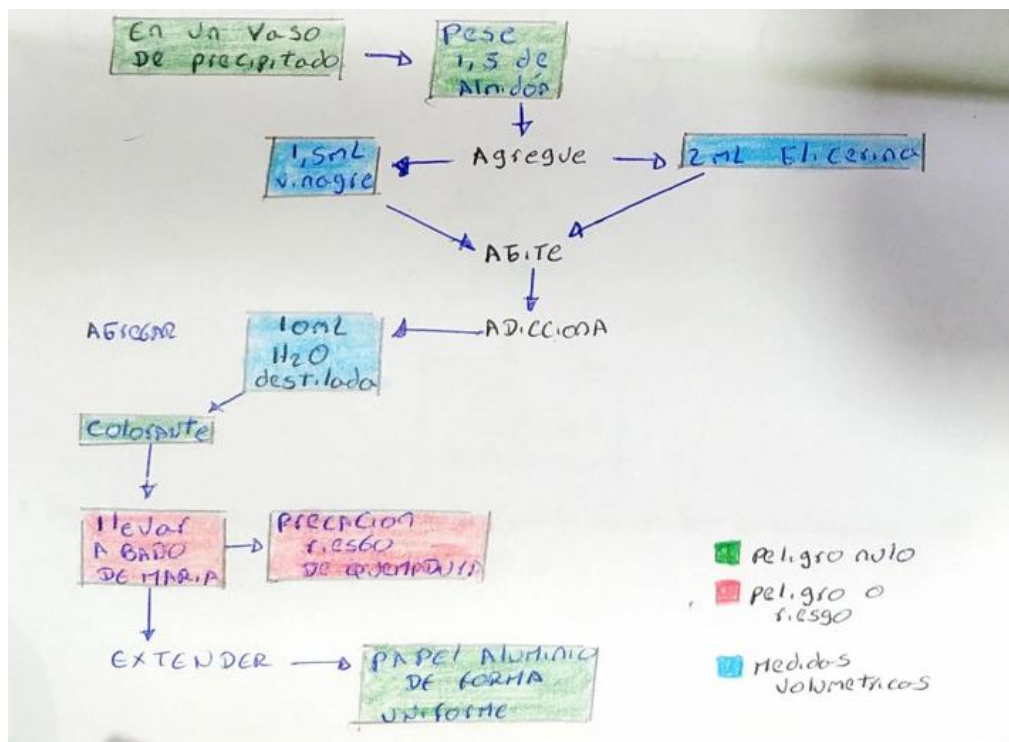 En un vaso
DE precipitado
Pese
1,5 de
Almidón
Agregue
1,5mL
vinagre
2 mL Glicerina
AGITE
ADICCIONA
AGREGAR
10mL
H2O
destilada
colorante
llevar
A BAÑO
DE MARIA
PRECACION
riesgo
DE QUEMADURA
EXTENDER
PAPEL ALUMINIO
DE FORMA
UNIFORME
peligro nulo
peligro o
riesgo
Medidas
volumetricas